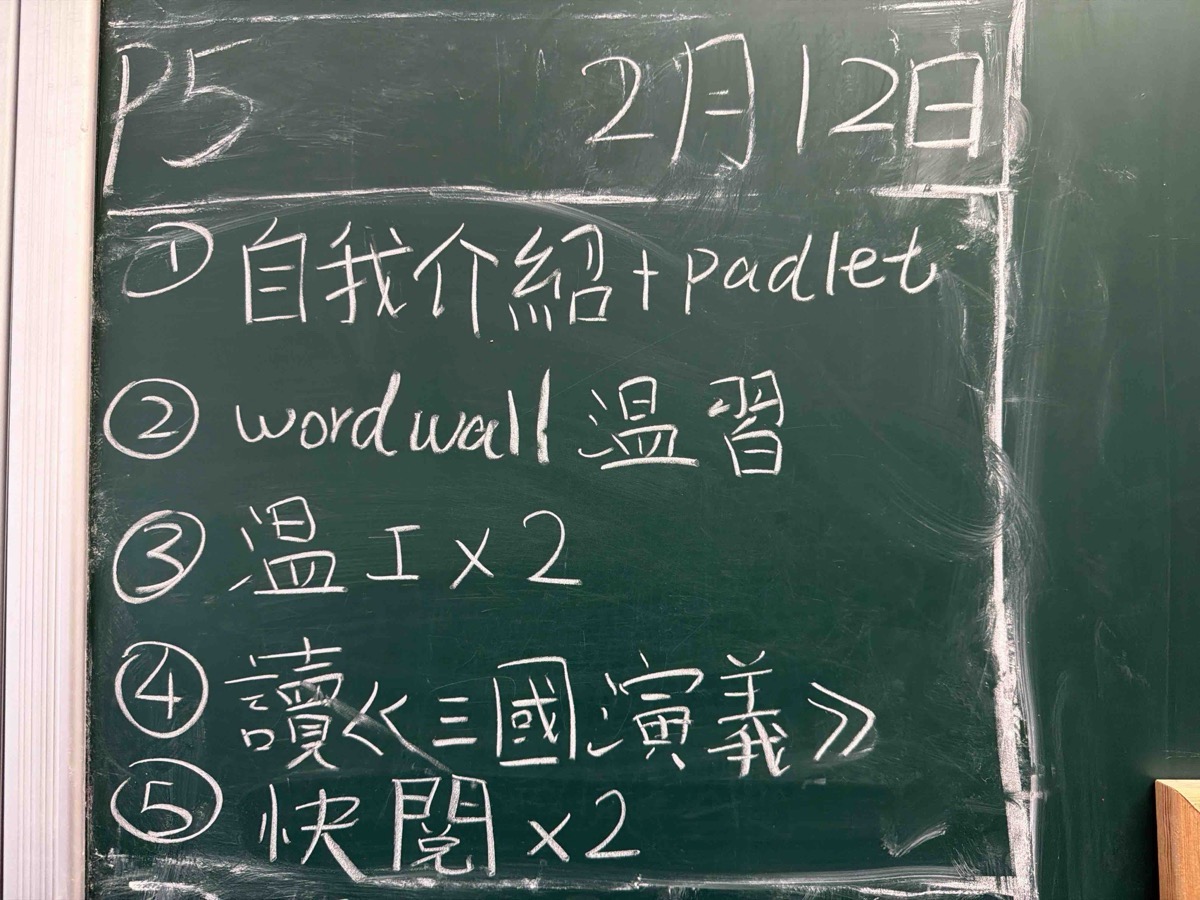 P5 2月12日
① 自我介紹+padlet
② wordwall 温習
③ 温工x2
④ 讀《三國演義》
⑤ 快閲x2